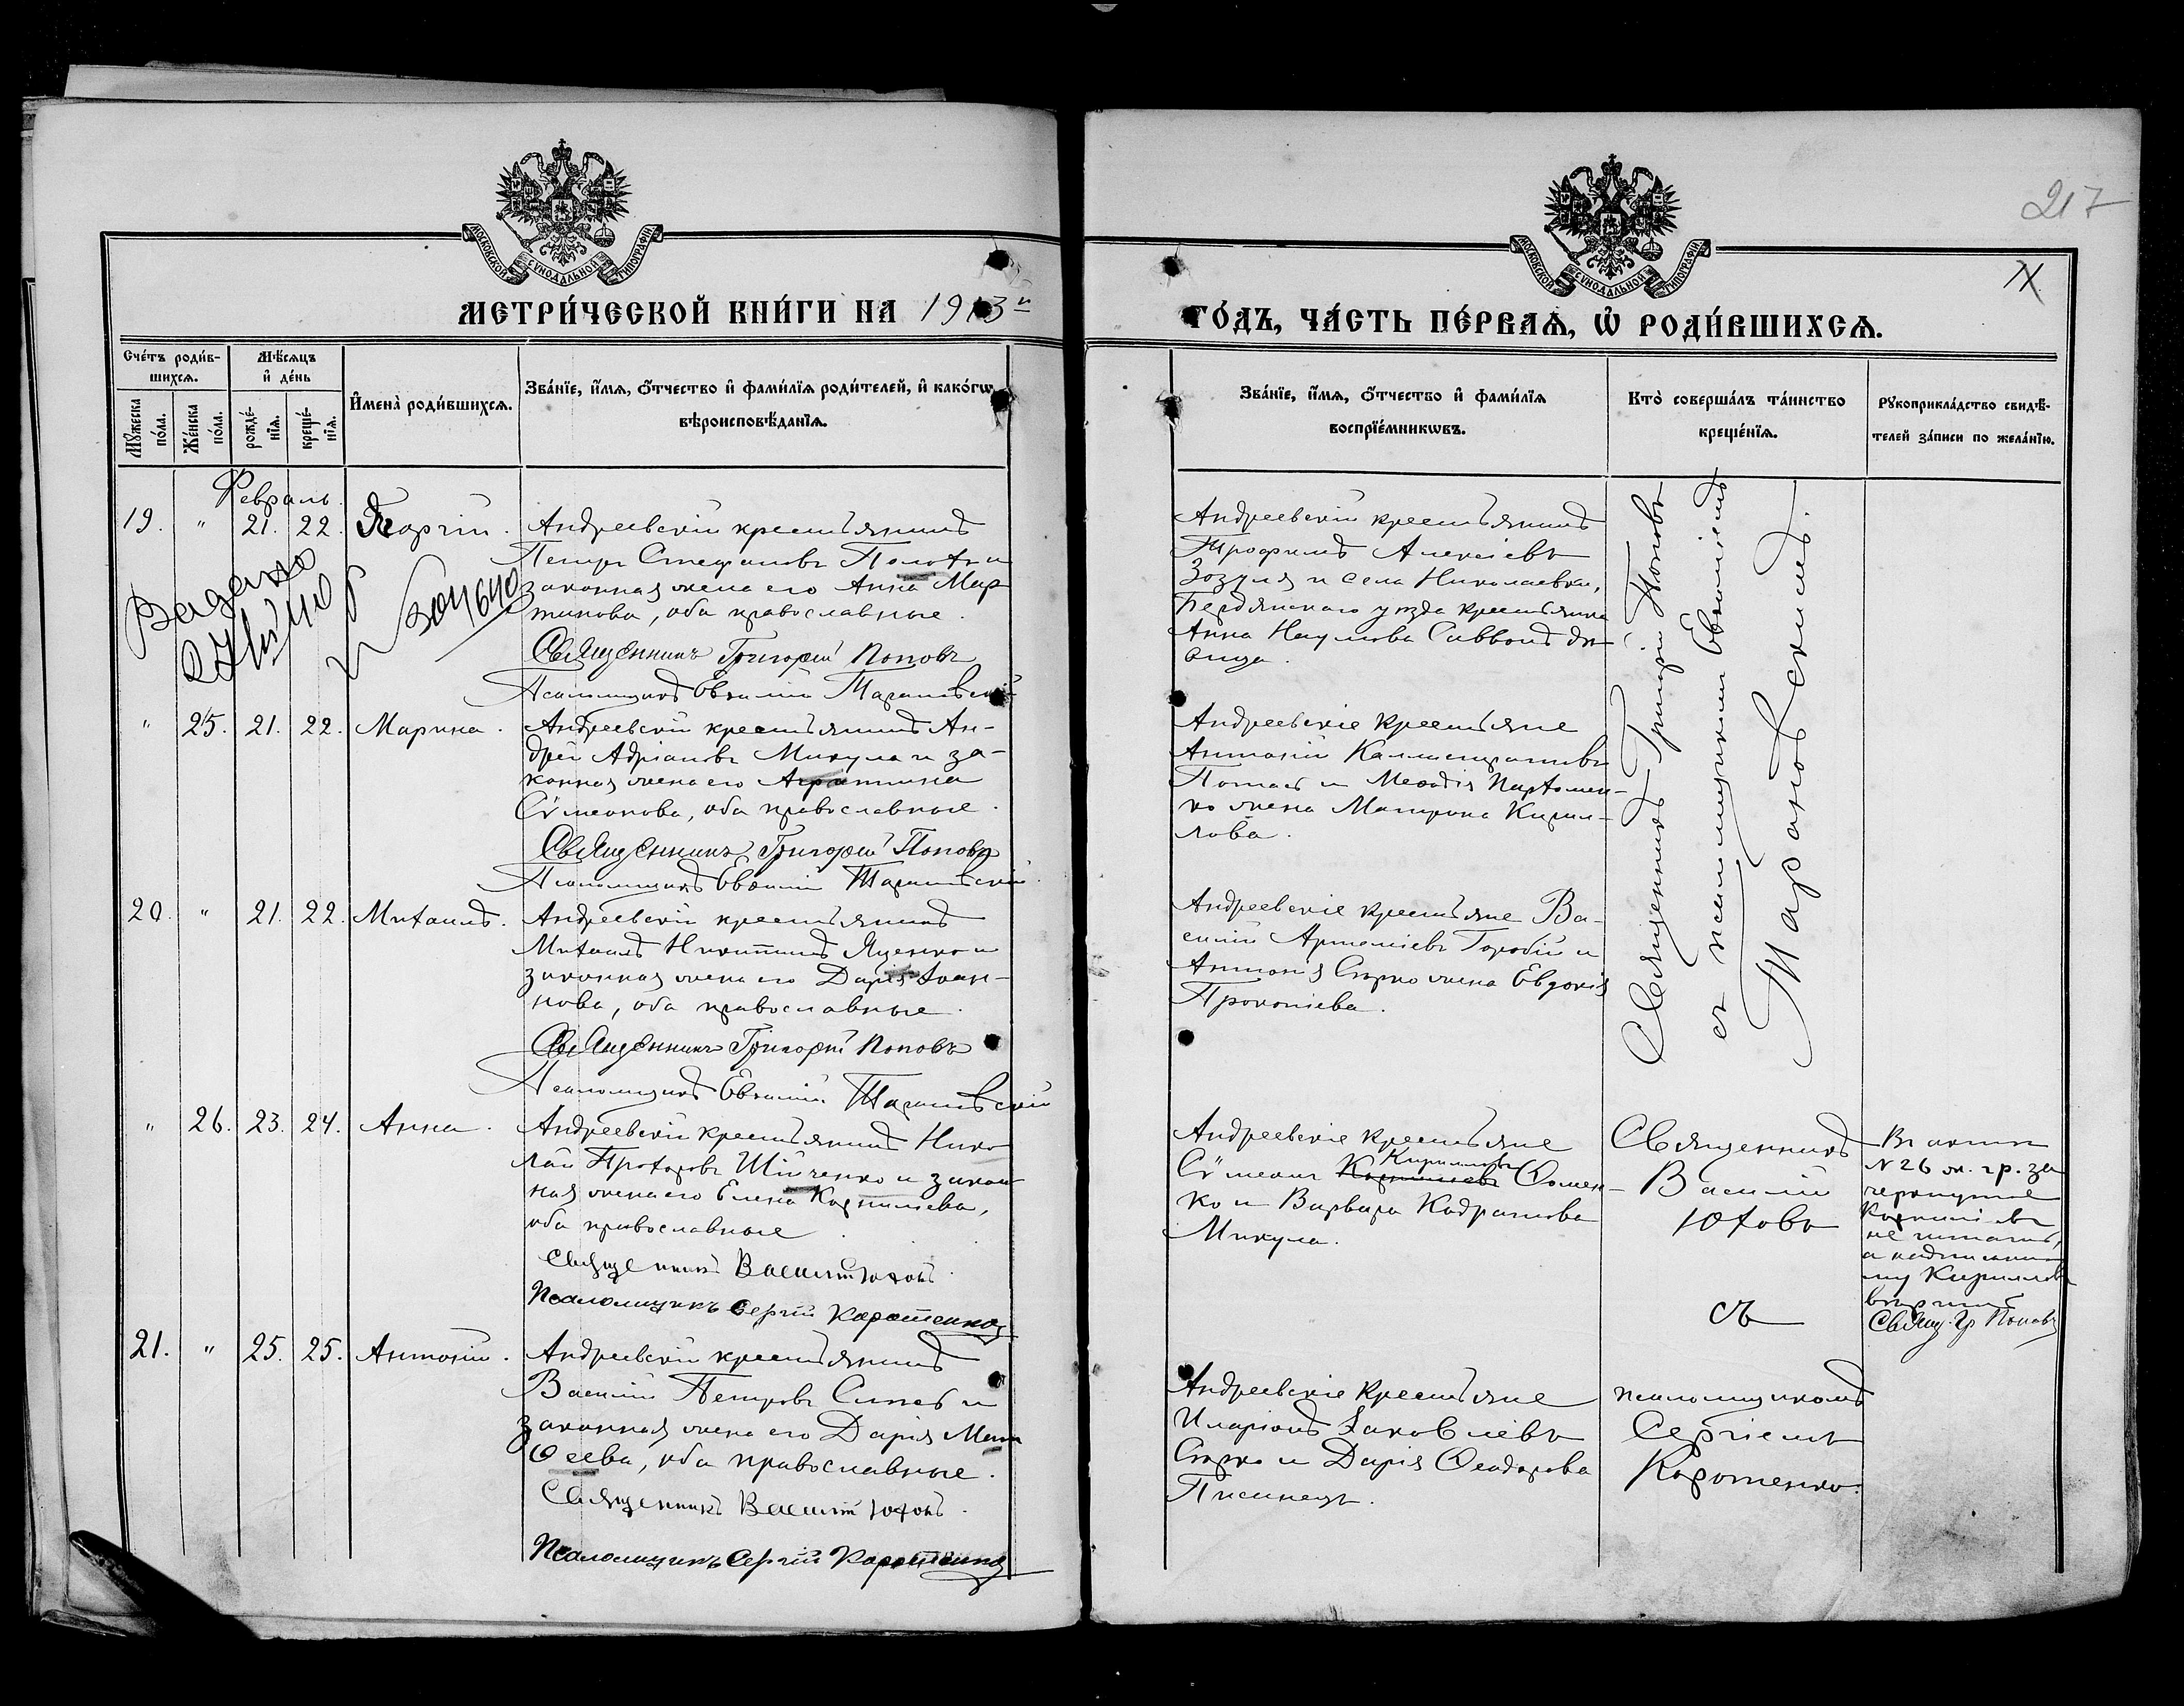 217
МОСКОВСКОЙ СѴНОДАЛЬНОЙ ТИПОГРАФІИ
МОСКОВСКОЙ СѴНОДАЛЬНОЙ ТИПОГРАФІИ
МЕТРИ́ЧЕСКОЙ КНИ́ГИ НА 1913й
ГО́ДЪ, ЧА́СТЬ ПЕ́РВАѦ, Ѡ РОДИ́ВШИХСѦ.
Сче́тъ роди́в-
шихсѧ.
Мꙋжеска по́ла.
Же́нска по́ла.
Мѣ́сѧцъ
и҆ де́нь
рожде́-
нїѧ.
креще́-
нїѧ.
И҆мена̀ роди́вшихсѧ.
Зва́нїе, и҆́мѧ, ѻ҆́тчество и҆ фами́лїѧ роди́телей, и҆ како́гѡ
вѣроисповѣ́данїѧ.
Зва́нїе, и҆́мѧ, ѻ҆́тчество и҆ фами́лїѧ
воспрїе́мникѡвъ.
Кто̀ соверша́лъ та́инство
креще́нїѧ.
Рꙋкоприкла́дство свидѣ́-
телей за́писи по жела́нїю.
Февраль
19. " 21. 22. Георгій.
Андреевскій крестьянинъ
Петръ Стефановъ и
законная жена его Анна Мар
тинова, оба православные.
Священникъ Григорій Поповъ
Псаломщикъ Евѳимій Тарановскій
Андреевскій крестьянинъ
Трофимъ Алексіевъ
Зозуля и села Николаевки,
Бердянскаго уѣзда крестьянка
Анна Наумова дѣ-
вица.
Священникъ Григорій Поповъ
съ псаломщикомъ Евѳиміемъ
Тарановскимъ.
Выдано
" 25. 21. 22. Марина.
Андреевскій крестьянинъ Ан-
дрей Адріановъ Микула и за-
конная жена его Агриппина
Сѵмеонова, оба православные.
Священникъ Григорій Поповъ
Псаломщикъ Евѳимій Тарановскій
Андреевскіе крестьяне
Антоній Каллистратовъ
и Меѳодія Пархомен-
ко жена Матрона Кирил-
лова.
20. " 21. 22. Михаилъ.
Андреевскій крестьянинъ
Михаилъ Никитинъ Яценко и
законная жена его Дарія Іоан-
нова, оба православные.
Священникъ Григорій Поповъ
Псаломщикъ Евѳимій Тарановскій
Андреевскіе крестьяне Ва-
силій Артеміевъ Горобій и
Антонія Сирко жена Евдокія
Прокопіева.
" 26. 23. 24. Анна.
Андреевскій крестьянинъ Нико
лай Прохоровъ и закон
ная жена его Елена Корниліева,
оба православные.
Священникъ Василій Юховъ.
Псаломщикъ Сергій Коротенко
Андреевскіе крестьяне
Сѵмеонъ Корниліевъ Кирилловъ Сомен-
ко и Варвара Кодратова
Микула.
Священникъ
Василій
Юховъ
съ
Въ актѣ
№ 26 ж. гр. за
черкнутое
Корниліевъ
не читать,
а надписанно
му Кирилловъ
вѣрить
Свящ. Гр Поповъ
21. " 25. 25. Антоній.
Андреевскій крестьянинъ
Василій Петровъ и
законная жена его Дарія Мат
ѳеева, оба православные.
Священникъ Василій Юховъ.
Псаломщикъ Сергій Коротенко
Андреевскіе крестьяне
Иларіонъ Іаковлевъ
Сирко и Дарія Ѳеодорова
псаломщикомъ
Сергіемъ
Коротенко.